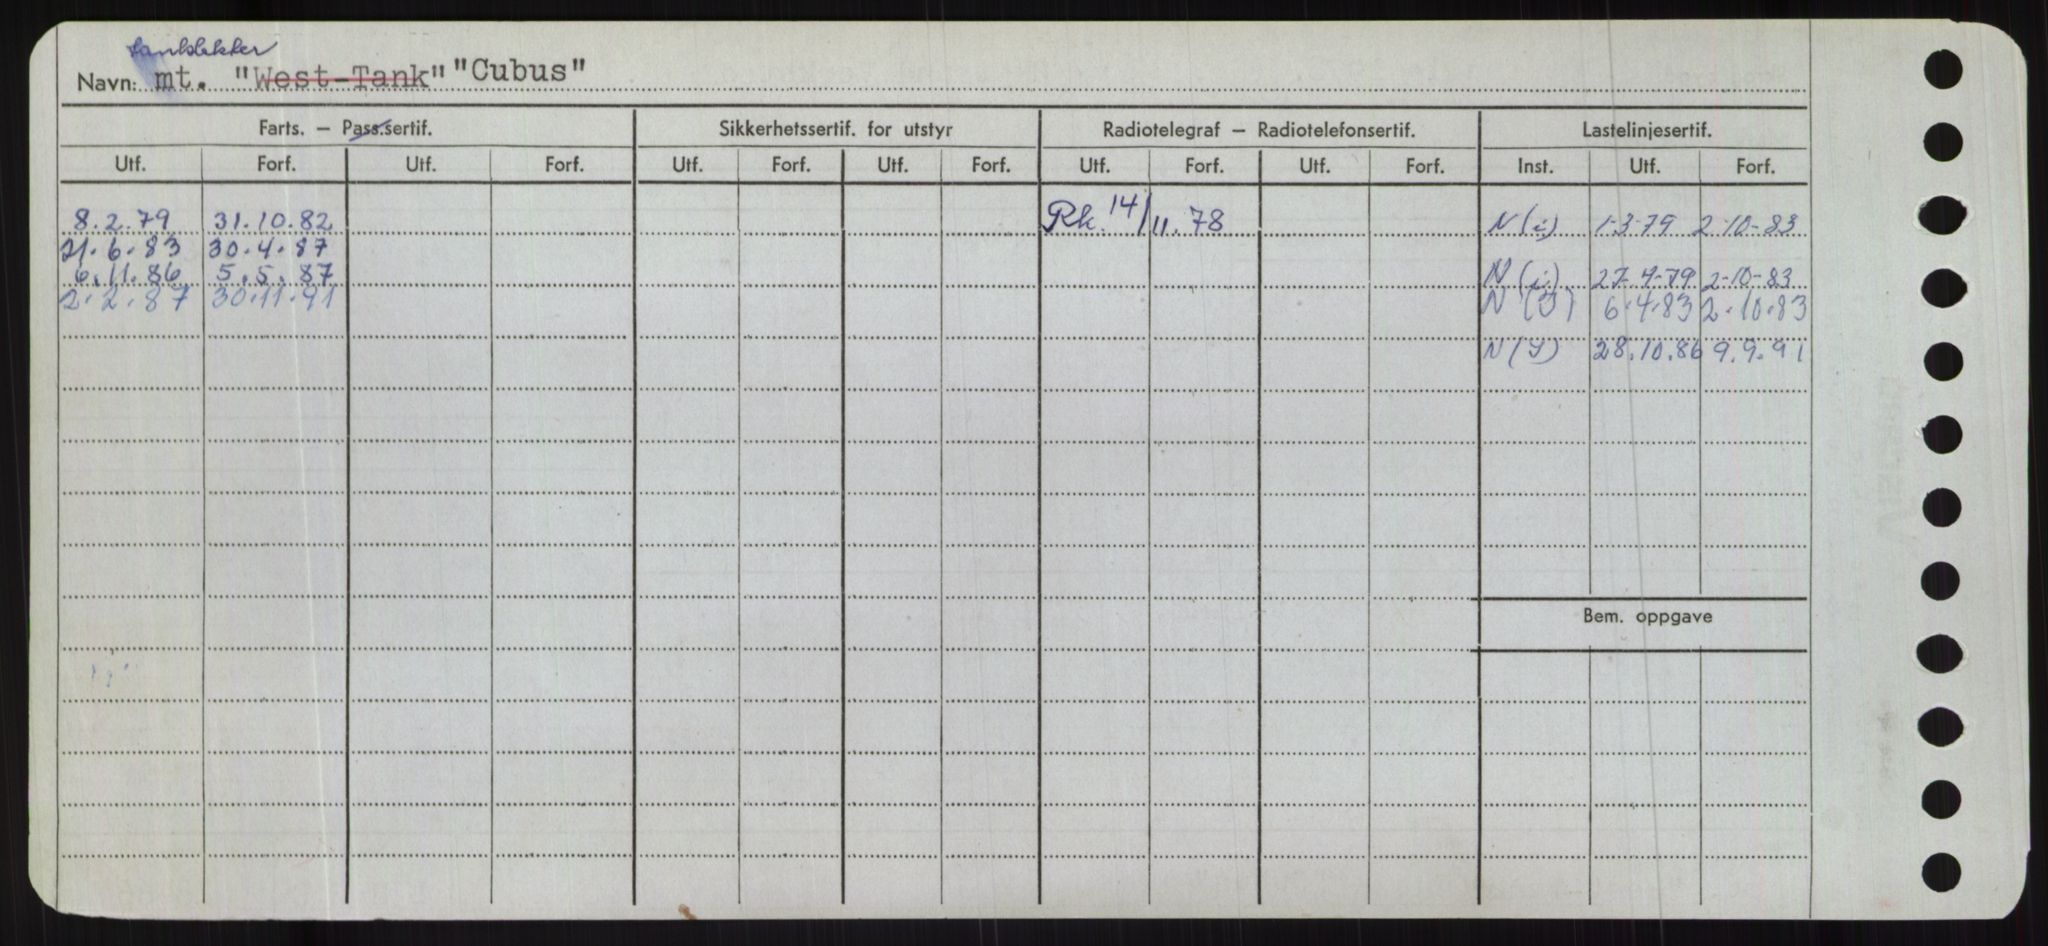 tanklekter
Navn: mt. "West-Tank" "Cubus"
Farts. – Pass.sertif. Sikkerhetssertif. for utstyr Radiotelegraf – Radiotelefonsertif. Lastelinjesertif.
Utf. Forf. Utf. Forf. Utf. Forf. Utf. Forf. Utf. Forf. Utf. Forf. Inst. Utf. Forf.
8.2.79 31.10.82 Rk. 14/11.78 N(i) 1-3-79 2-10-83
21.6.83 30.4.87
6.11.86 5.5.87 N(i) 27-4-79 2-10-83
2.2.87 30.11.91 N(J) 6.4.83 2.10.83
N(Y) 28.10.86 9.9.91
Bem. oppgave